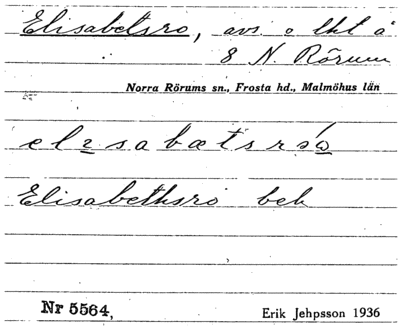 Elisabetsro, avs. o lht å
8 N. Rörum
Norra Rörums sn., Frosta hd., Malmöhus län
Elisabethsro beb
Nr 5564,
Erik Jehpsson 1936